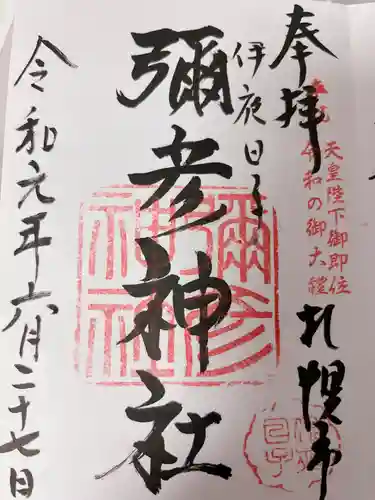 奉拝
札幌市
天皇陛下御即位
令和の御大禮
伊夜日子
彌彦神社
令和元年六月二十七日
彌彦神社